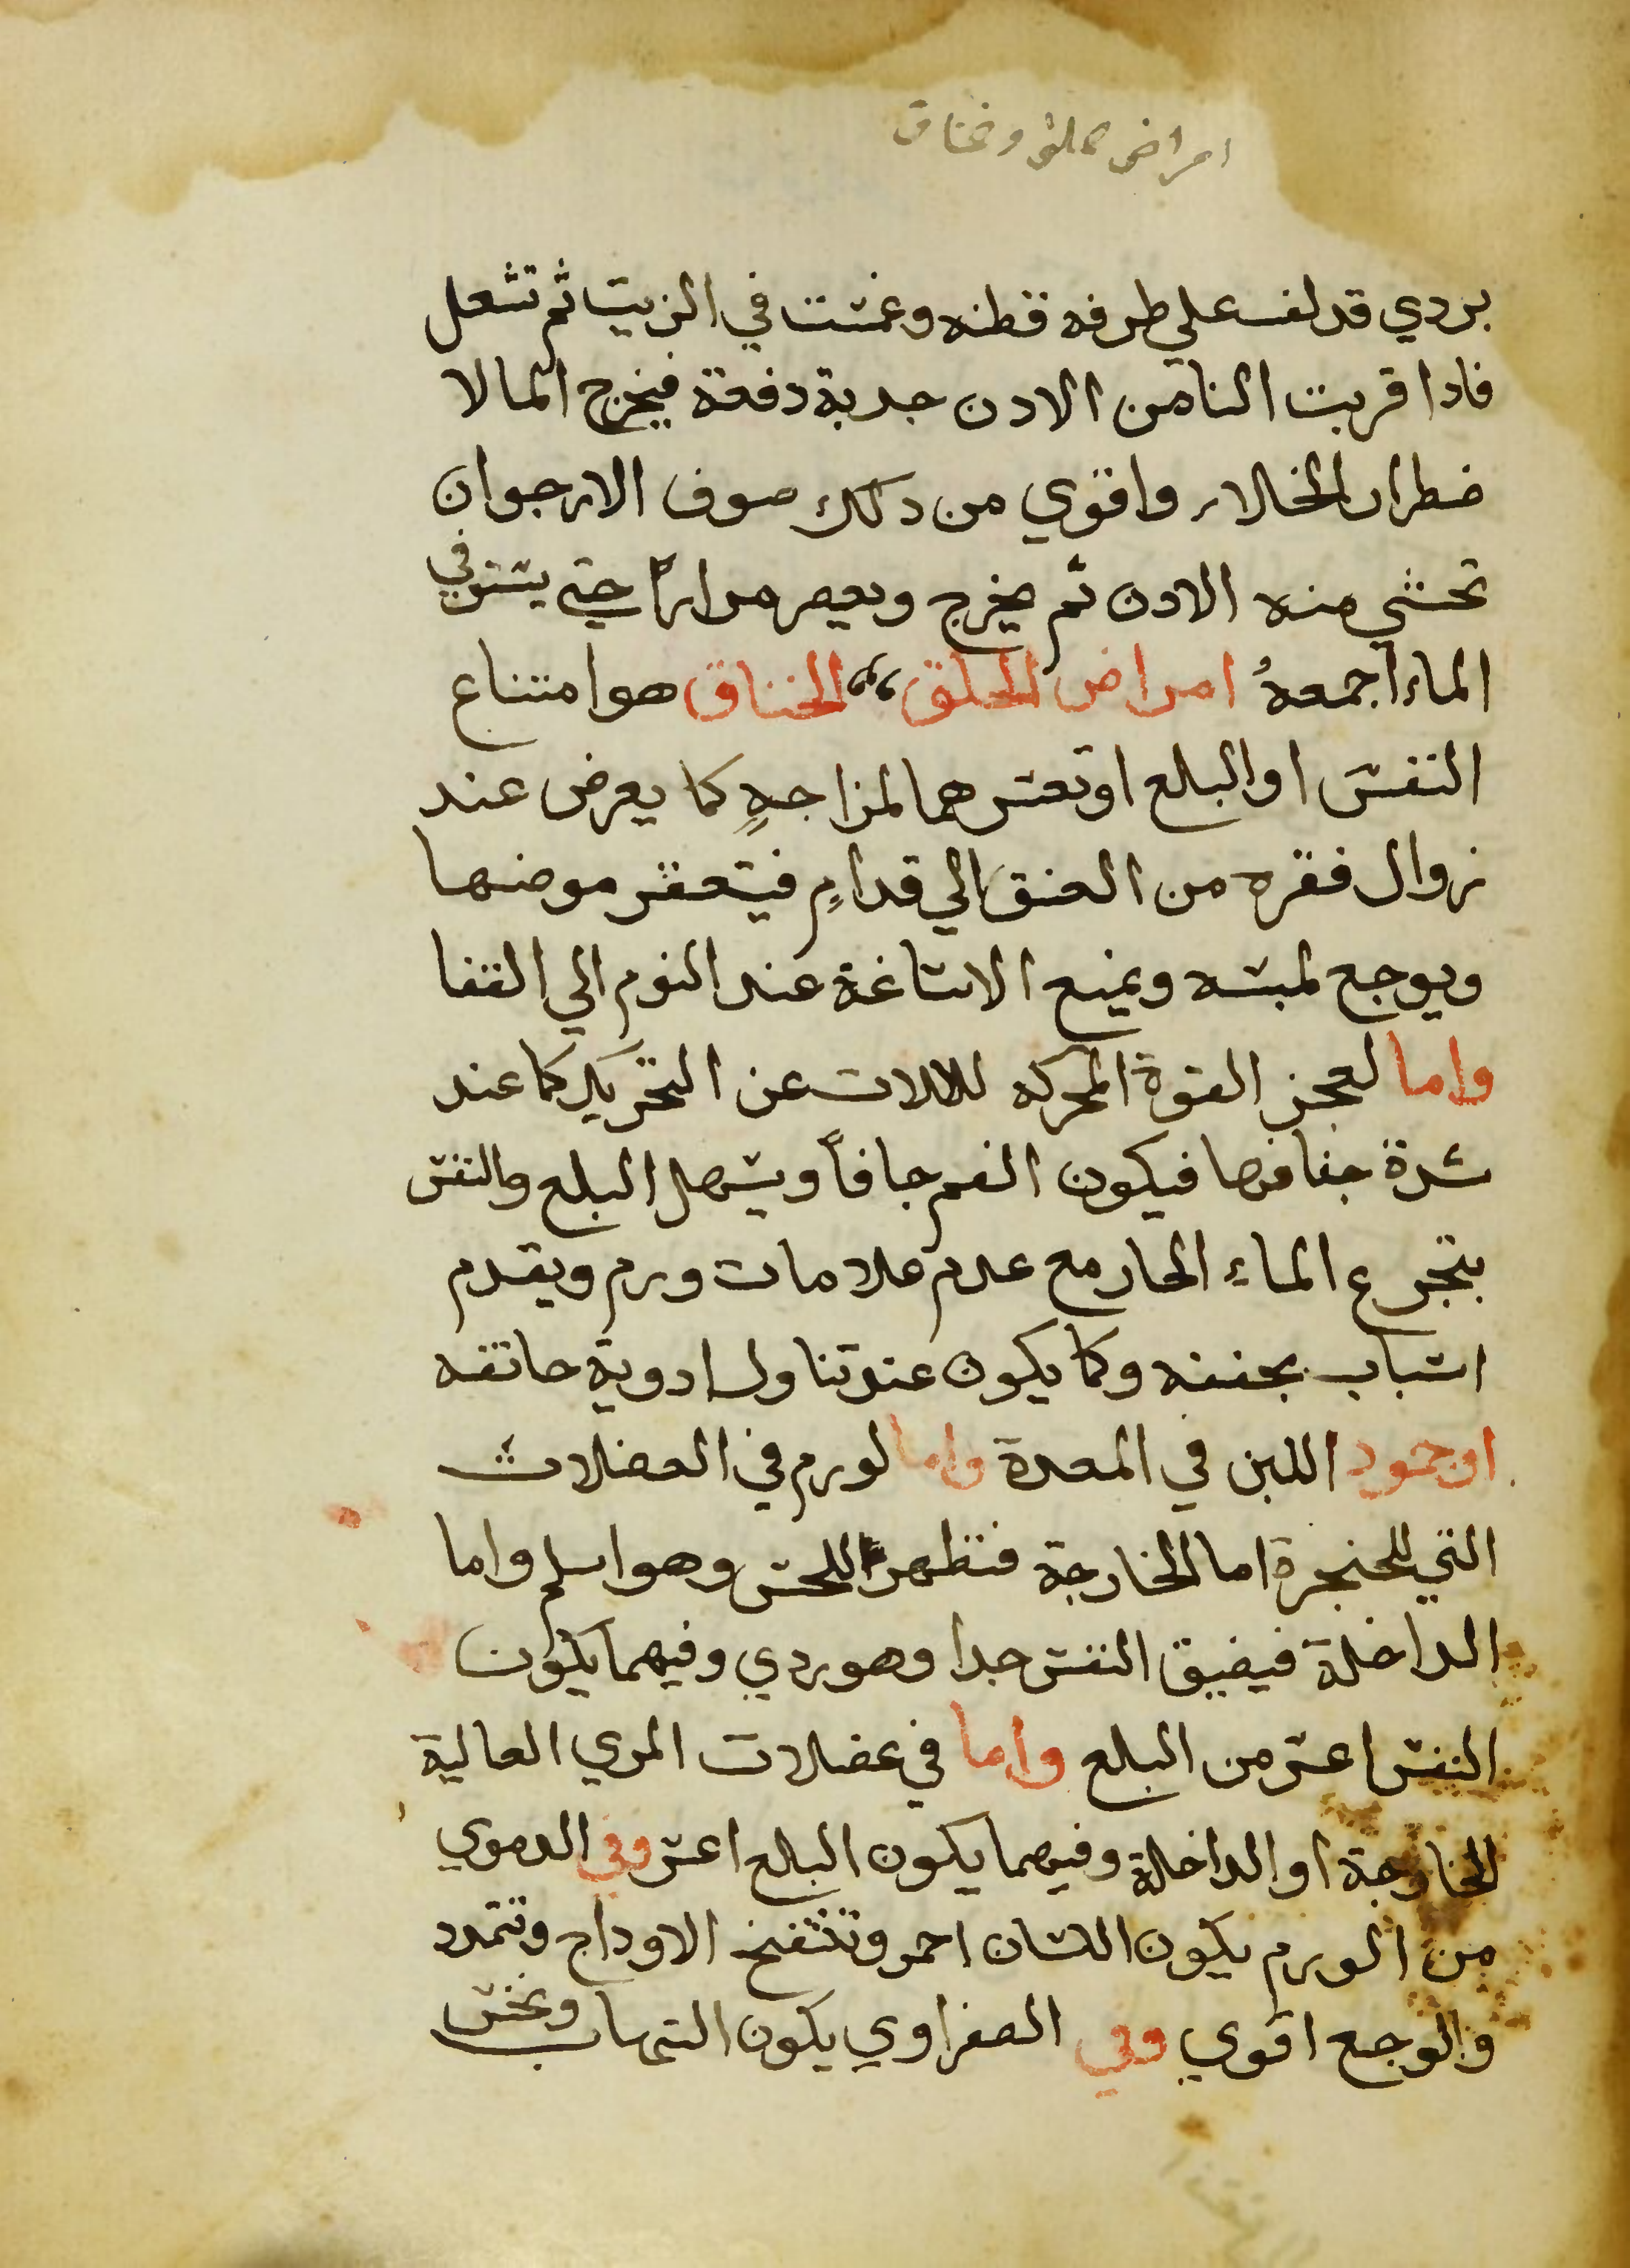 امراض حلق وخناق
بردي قد لف علي طرفه قطنه وغمست في الزيت ثم تشعل
فادا قربت النا من الادن جدبة دفعة فيخرج الما لا
ضطرار الخلار واقوي من دلك صوف الارجوان
تحشي منه الادن ثم يخرج ويعصر مراراً حتي يستوفي
الماء اجمعهُ امراض الحلق الخناق هو امتناع
النفسَ او البلع او تعسرهما لمزاجهٍ كما يعرض عند
زوال فقره من العنق الي قدامٍ فيتعقر موضعها
ويوجع لمسه ويمنع الاساغة عند النوم الي القفا
واما لعجز القوة المحركه للالات عن التحريك كما عند
شدة جفافها فيكون الفم جافاً ويسهل البلع والنفس
بتجرع الماء الحار مع عدم علامات ورم ويقدم
اسباب مجففه وكما يكون عند تناول ادوية خانقه
او جمود اللبن في المعدة واما لورم في العضلات
التي للحنجرة اما الخارجة فتظهر للحس وهو اسلم واما
الداخلة فيضيق النفس جدا وهو ردي وفيهما يكون
النفس اعسر من البلع واما في عضلات المري العالية
الخارجة او الداخلة وفيهما يكون البلع اعسر وفي الدموي
من الورم يكون اللسان احمر وتنتفخ الاوداج وتتمدد
والوجع اقوي وفي الصفراوي يكون التهاب ونخس